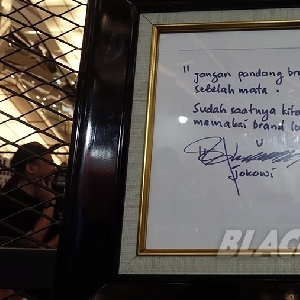 " jangan pandang bra
sebelah mata.
Sudah saatnya kita
memakai brand lo
"
Jokowi
BLAC